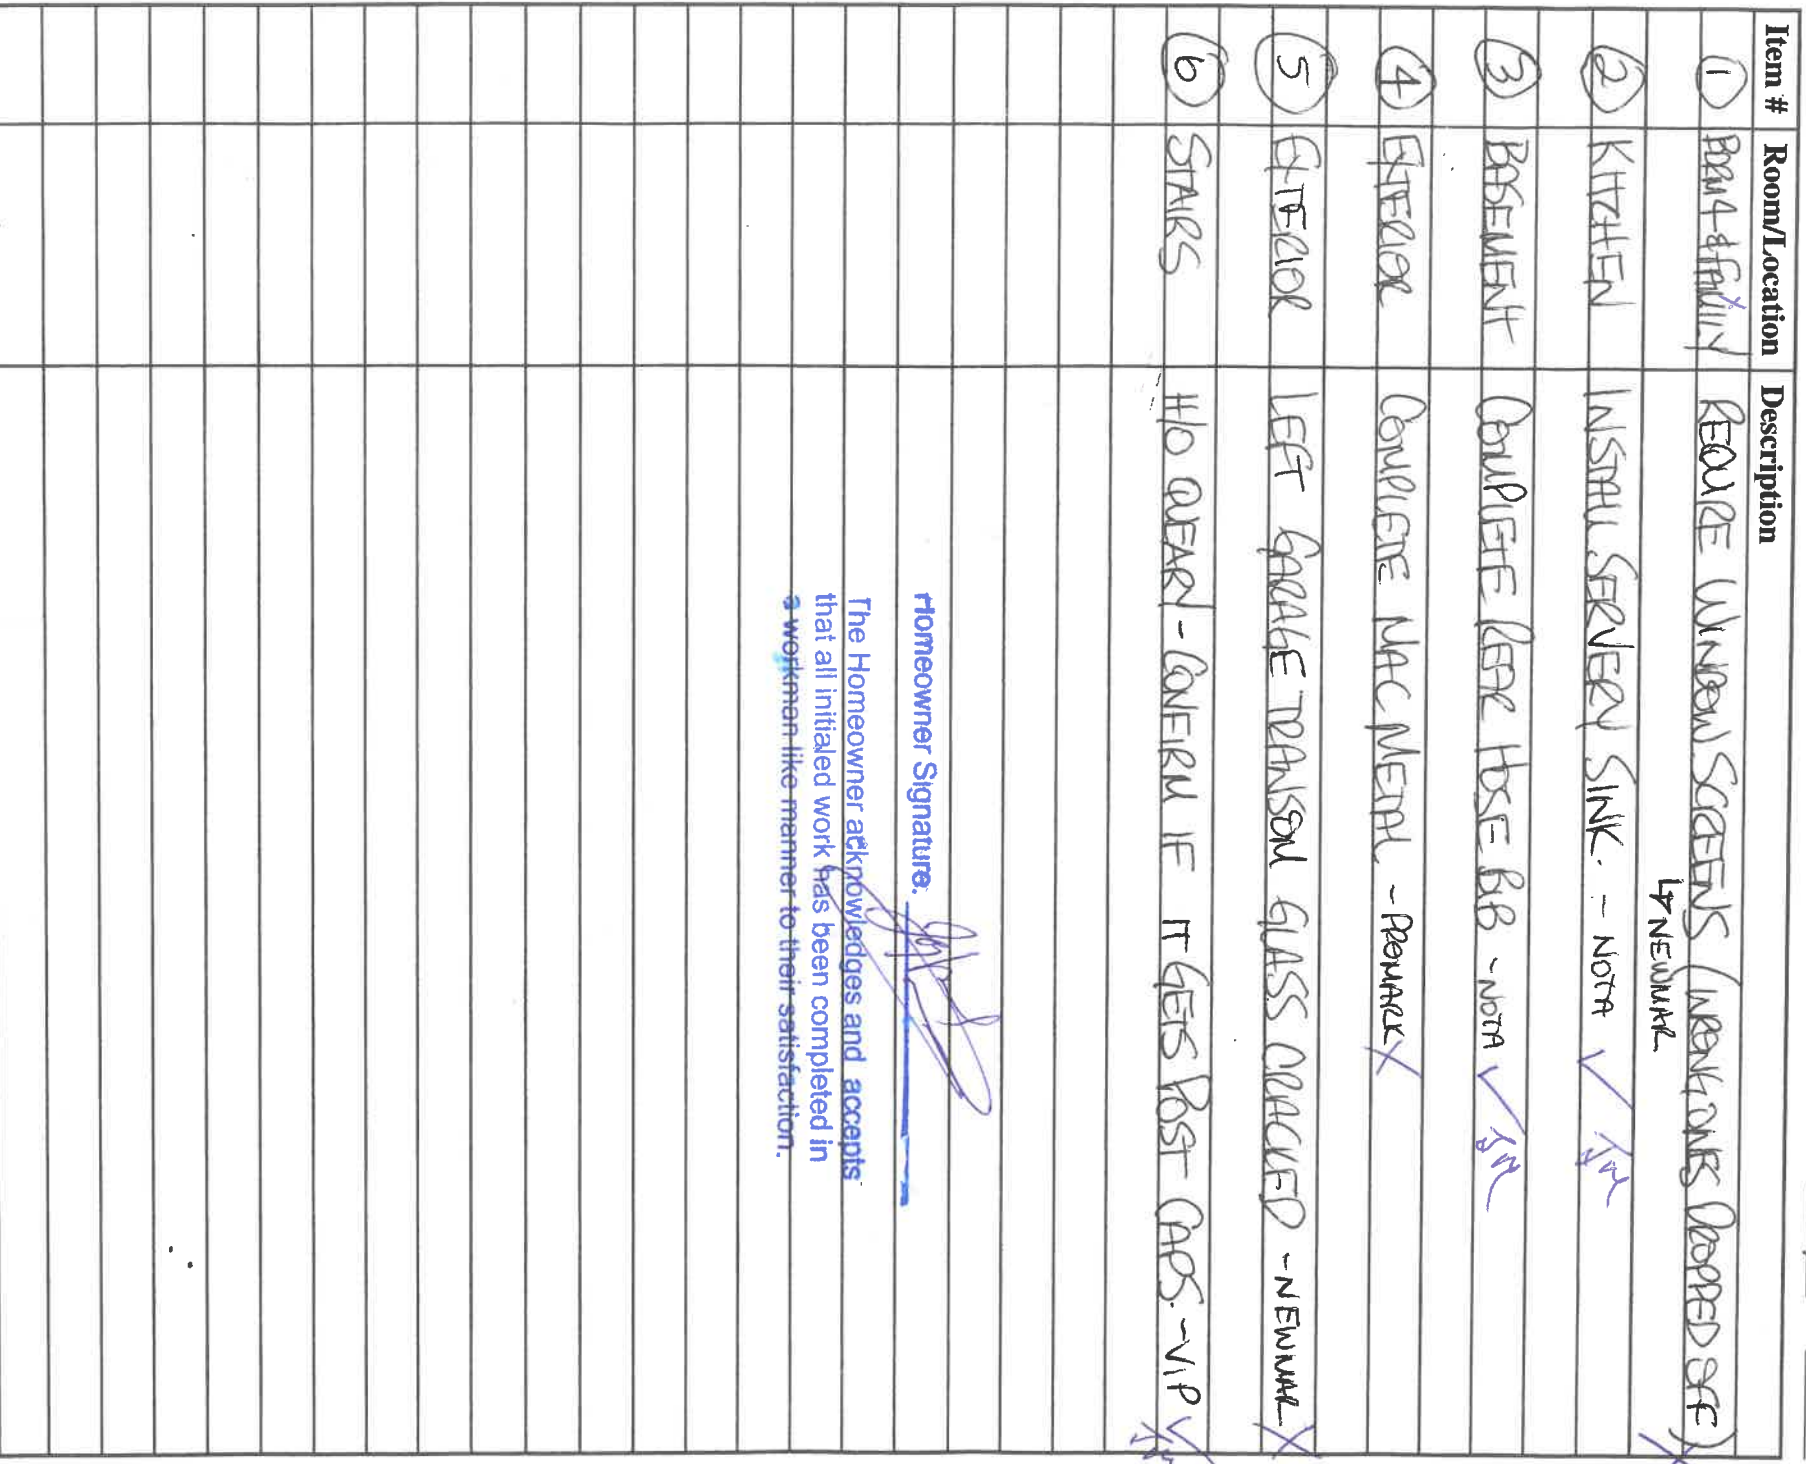 Item # Room/Location Description
1 BDRM 4 & FAMILY REQUIRE WINDOW SCREENS ( DROPPED OFF) X
↳ NEWMAR
2 KITCHEN INSTALL SERVERY SINK. - NOTA ✓ JM
3 BASEMENT COMPLETE REAR HOSE BIB - NOTA ✓ JM
4 EXTERIOR COMPLETE MAC METAL - PROMARK X
5 EXTERIOR LEFT GARAGE TRANSOM GLASS CRACKED - NEWMAR X
6 STAIRS H/O QUERY - CONFIRM IF IT GETS POST CAPS. - VIP ✓ JM
Homeowner Signature.
The Homeowner acknowledges and accepts
that all initialed work has been completed in
a workman like manner to their satisfaction.